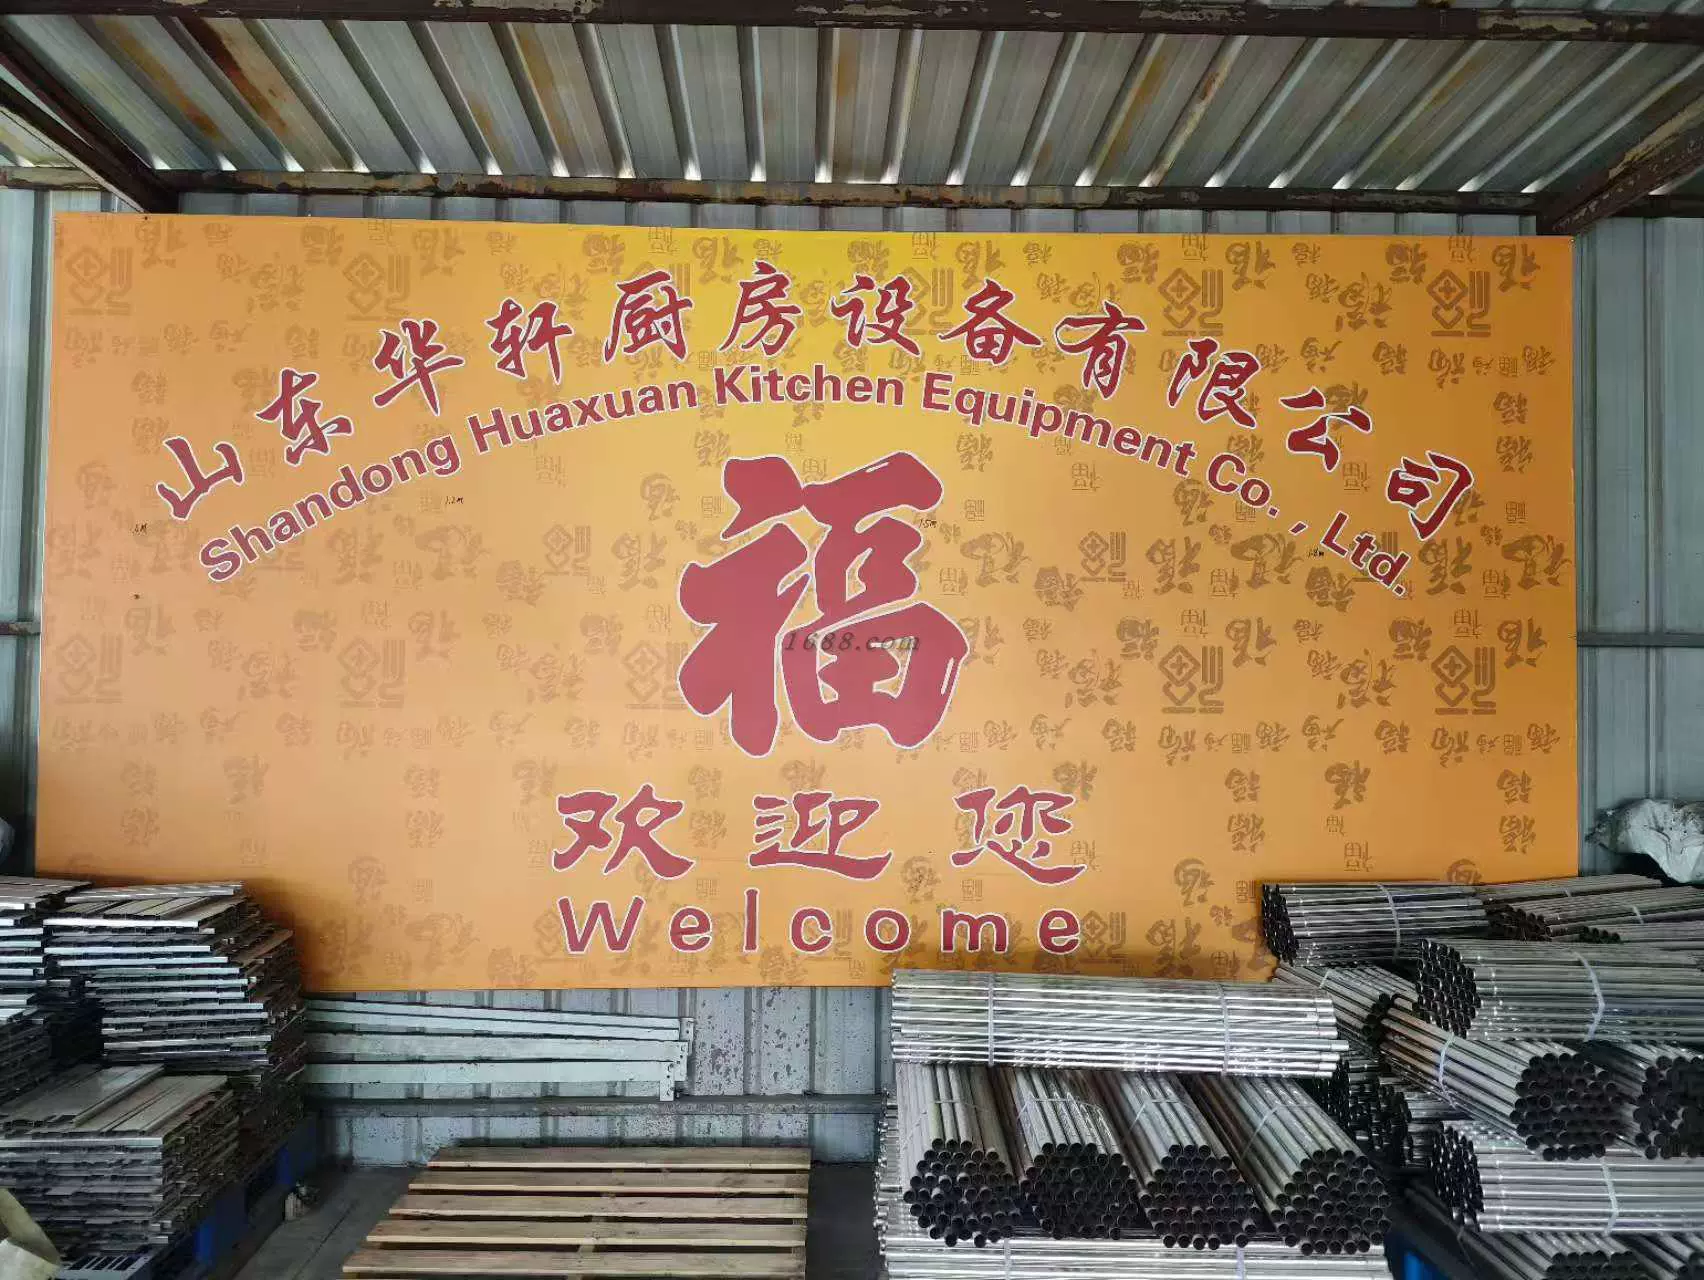 山东华轩厨房设备有限公司
Shandong Huaxuan Kitchen Equipment Co., Ltd.
福
1688.com
欢迎您
Welcome
1.2m
1.5m
1.8m